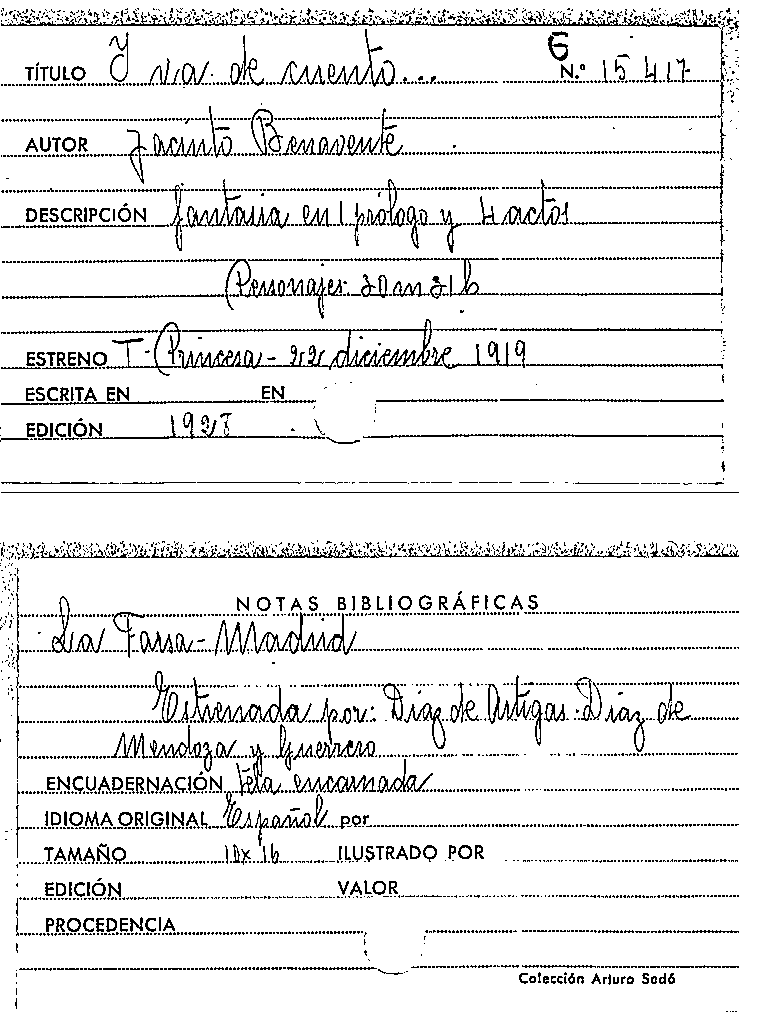 G
TÍTULO Y va de cuento... N.º 15417
AUTOR Jacinto Benavente
DESCRIPCIÓN fantasia en 1 prólogo y 4 actos
Personajes: 20 m 21 h
ESTRENO T. Princesa - 22 diciembre 1919
ESCRITA EN EN
EDICIÓN 1928
NOTAS BIBLIOGRÁFICAS
La Farsa - Madrid
Estrenada por: Diaz de Artigas - Diaz de
Mendoza y Guerrero
ENCUADERNACIÓN Tela encarnada
IDIOMA ORIGINAL Español por
TAMAÑO 10x16 ILUSTRADO POR
EDICIÓN VALOR
PROCEDENCIA
Colección Arturo Sedó